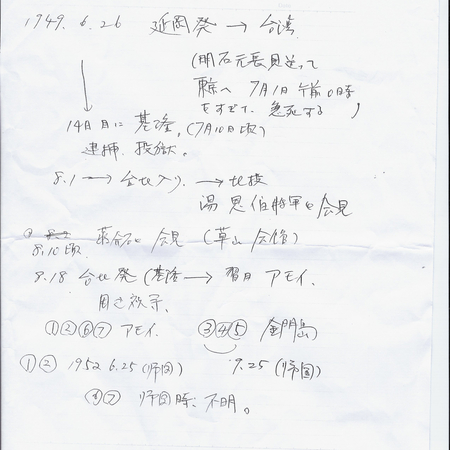 1949. 6. 26 延岡発 → 台湾
(明石元長見送って
東京へ 7月1日 午前0時
をすぎて、急死する)
14日目に 基隆, (7月10日頃)
逮捕. 投獄。
8.1 → 台北入り. → 北投
湯恩伯将軍と会見
8.10頃 蒋介石と会見 (草山会館)
8.18 台北発 (基隆 → 翌日 アモイ.
①②⑥⑦ アモイ. ③④⑤ 金門島
①② 1952 6.25 (帰国) 9.25 (帰国)
⑥⑦ 帰国時、不明。